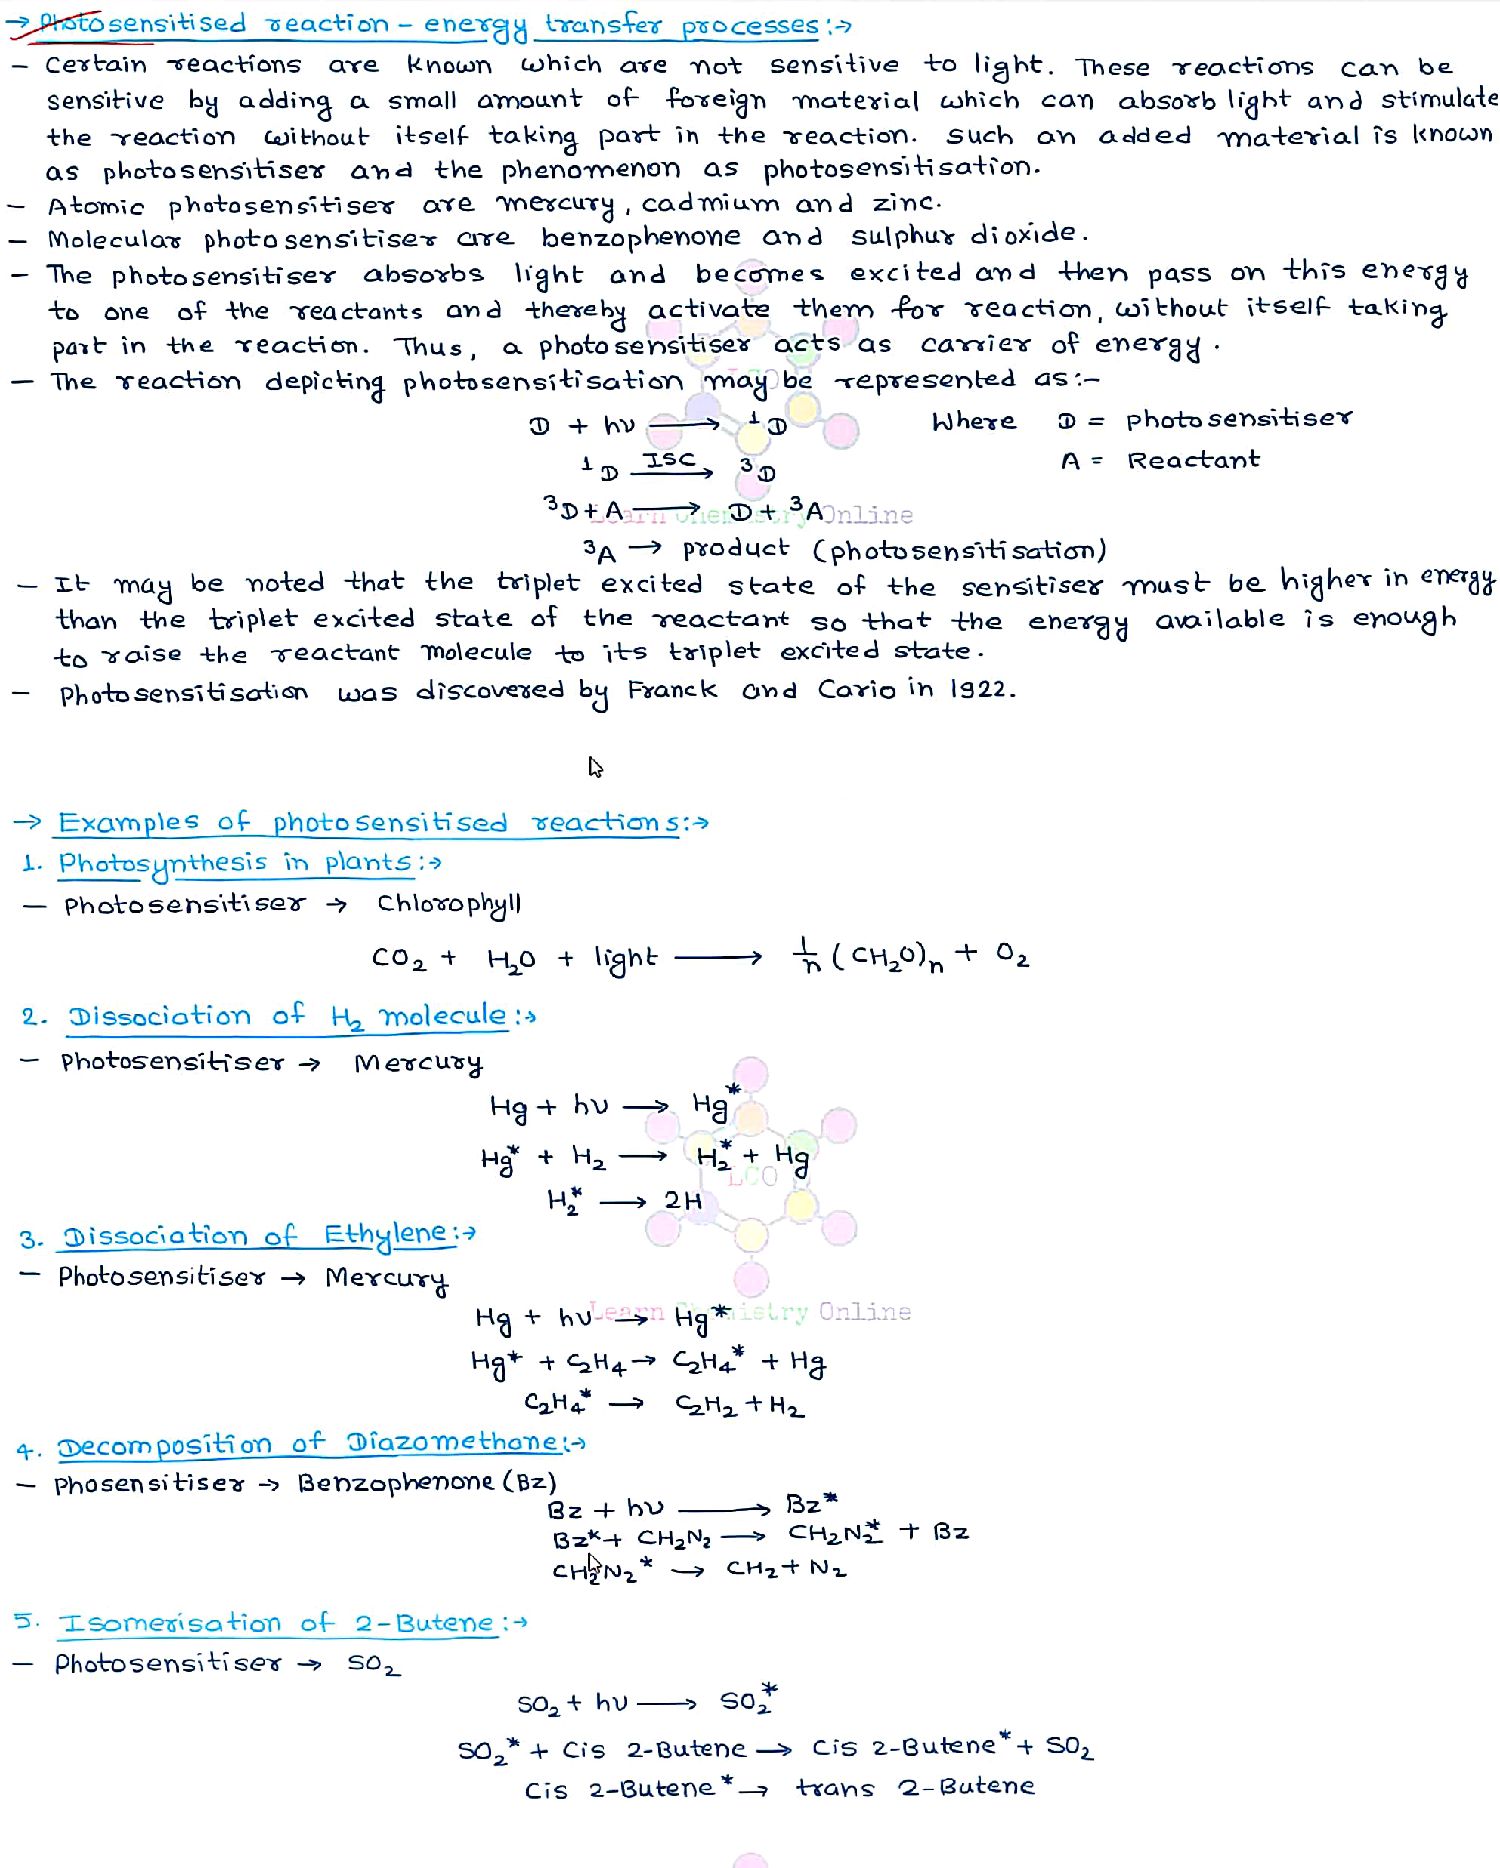 → Photosensitised reaction - energy transfer processes:→
- Certain reactions are known which are not sensitive to light. These reactions can be
sensitive by adding a small amount of foreign material which can absorb light and stimulate
the reaction without itself taking part in the reaction. Such an added material is known
as photosensitiser and the phenomenon as photosensitisation.
- Atomic photosensitiser are mercury, cadmium and zinc.
- Molecular photosensitiser are benzophenone and sulphur dioxide.
- The photosensitiser absorbs light and becomes excited and then pass on this energy
to one of the reactants and thereby activate them for reaction, without itself taking
part in the reaction. Thus, a photosensitiser acts as carrier of energy.
- The reaction depicting photosensitisation may be represented as:-
D + hν → ¹D Where D = photosensitiser
¹D ISC→ ³D A = Reactant
³D + A → D + ³A
Learn Chemistry Online
³A → product (photosensitisation)
- It may be noted that the triplet excited state of the sensitiser must be higher in energy
than the triplet excited state of the reactant so that the energy available is enough
to raise the reactant molecule to its triplet excited state.
- Photosensitisation was discovered by Franck and Cario in 1922.
→ Examples of photosensitised reactions:→
1. Photosynthesis in plants:→
- Photosensitiser → Chlorophyll
CO₂ + H₂O + light → 1/n (CH₂O)n + O₂
2. Dissociation of H₂ molecule:→
- Photosensitiser → Mercury
Hg + hν → Hg*
Hg* + H₂ → H₂* + Hg
LCO
H₂* → 2H
3. Dissociation of Ethylene:→
- Photosensitiser → Mercury
Hg + hν → Hg*
Learn Chemistry Online
Hg* + C₂H₄ → C₂H₄* + Hg
C₂H₄* → C₂H₂ + H₂
4. Decomposition of Diazomethane:→
- Phosensitiser → Benzophenone (Bz)
Bz + hν → Bz*
Bz* + CH₂N₂ → CH₂N₂* + Bz
CH₂N₂* → CH₂ + N₂
5. Isomerisation of 2-Butene:→
- Photosensitiser → SO₂
SO₂ + hν → SO₂*
SO₂* + Cis 2-Butene → Cis 2-Butene* + SO₂
Cis 2-Butene* → trans 2-Butene